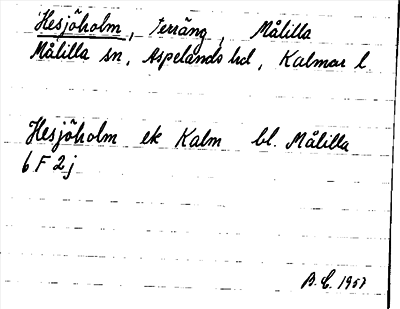 Hesjöholm, terräng, Målilla
Målilla sn, Aspelands hd, Kalmar l
Hesjöholm ek Kalm bl. Målilla
6 F 2 j
B. C. 1957